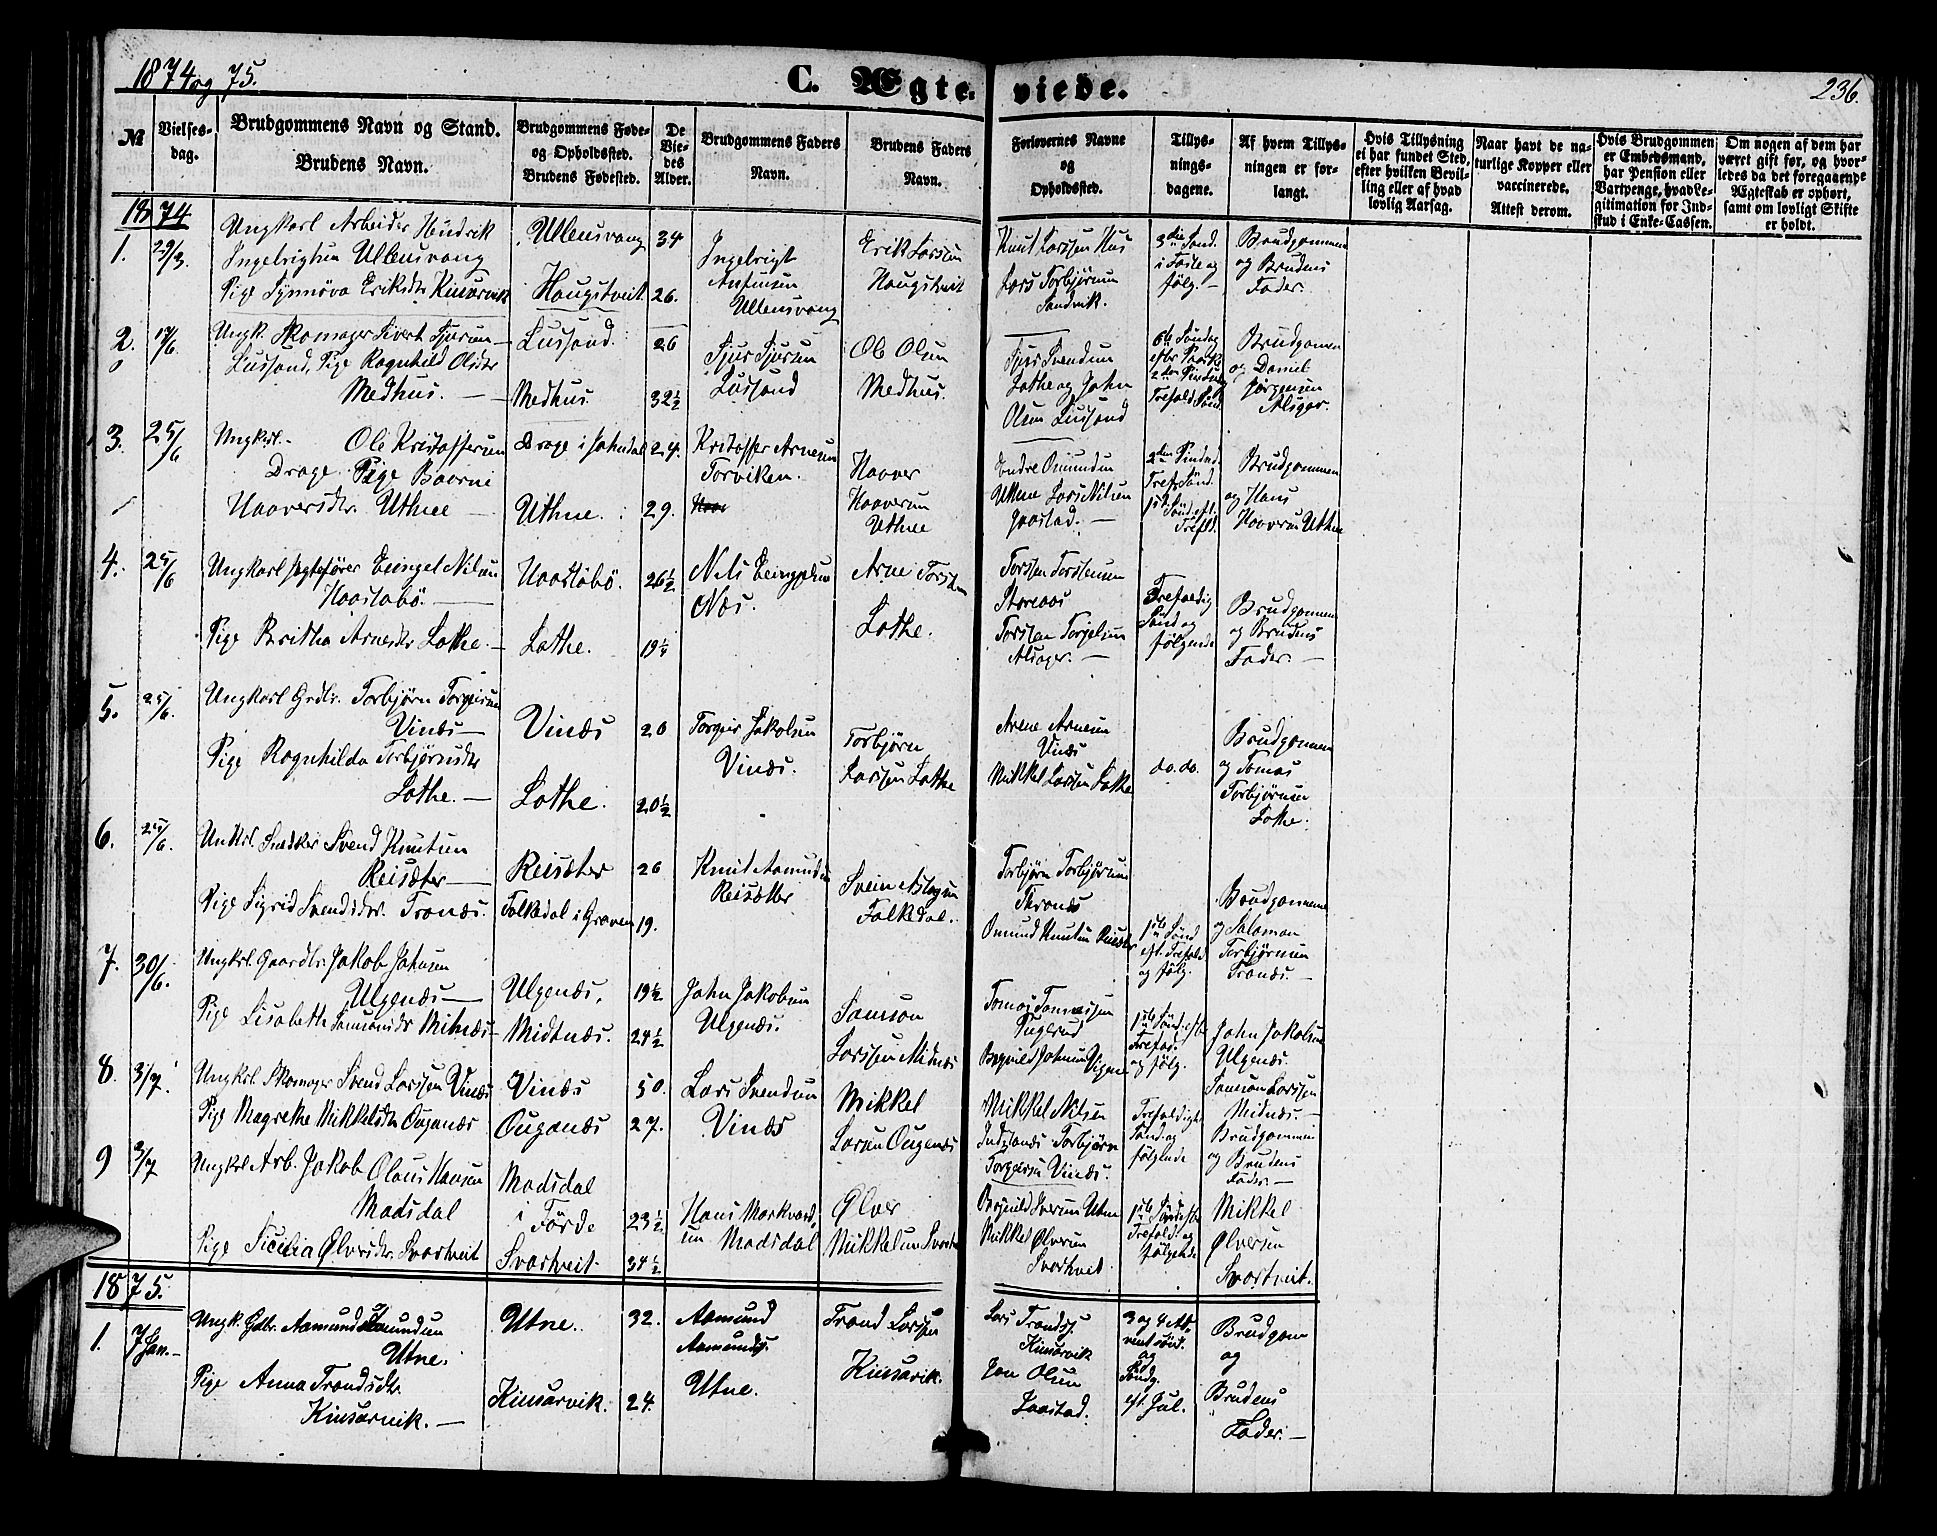 1874 og 75.
C. Ægteviede.
236.
№
Vielses-
dag.
Brudgommens Navn og Stand.
Brudens Navn.
Brudgommens Føde-
og Opholdssted.
Brudens Fødested.
De
Vie-
des
Alder.
Brudgommens Faders
Navn.
Brudens Faders
Navn.
Forlovernes Navne
og
Opholdssted.
Tillys-
nings-
dagene.
Af hvem Tillys-
ningen er for-
langt.
Hvis Tillysning
ei har fundet Sted,
efter hvilken Bevil-
ling eller af hvad
lovlig Aarsag.
Naar havt de na-
turlige Kopper eller
vaccinerede.
Attest derom.
Hvis Brudgommen
er Embedsmand,
har Pension eller
Vartpenge, hvad Le-
gitimation for Ind-
skud i Enke-Cassen.
Om nogen af dem har
været gift før, og hvor-
ledes da det foregaaende
Ægteskab er ophørt,
samt om lovligt Skifte
er holdt.
1874
1. 29/3. Ungkarl Arbeider Hendrik
Ingebrigtsen Ullensvang
Pige Synnøva Eriksdtr Kinsarvik
Ullensvang 34
Haugstveit 26.
Ingebrigt
Ullensvang
Erik Larssen
Haugstveit
Knut Larssen Hus
Lars Torbjørnsen
Sandvik.
3die Sønd.
i Faste og
følg. —
Brudgommen
og Brudens
Fader.
2. 17/6. Ungk. Skomager Sivert Sjursen
Lussand, Pige Ragnhild Olsdtr
Medhus. —
Lussand. 26
Medhus 32½
Sjur Sjursen
Lussand
Ole Olsen
Medhus.
Sjur Svendsen
Lothe og John
Olsen Lussand
6te Søndag
efter Paaske
2den Pindsedag
Trefold. Sønd.
Brudgommen
og Daniel
Jørgensen
Alsager.
3. 25/6 Ungkrl. Ole Kristoffersen
Drage Pige Baarni
Haaversdtr. Uthne —
Drage i Jondal 24.
Uthne. 29.
Kristoffer Arnesen
Torviken.
Haaver
Haaversen
Uthne
Endre Omundsen
Uthne Lars Nilsen
Jaastad. —
2den Pindsed.
Tref. Sønd.
1ste Sønd. eft.
Trefld.
Brudgommen
og Hans
Haaversen Uthne
4. 25/6 Ungkarl Jagtefører Engel Nilsen
Haastabø. —
Pige Britha Arnesdtr Lothe. —
Haastabø. 26½
Lothe. 19¼
Nels
Næs.
Arne Torsten
Lothe.
Torsten Torstensen
Storeaas
Torsten Torgilsen
Alsager. —
Trefoldig
Sønd og
følgende
Brudgommen
og Brudens
Fader. —
5. 25/6. Ungkarl Grdbr. Torbjørn Torgeirsen
Vinæs —
Pige Ragnhilda Torbjørnsdtr
Lothe. —
Vinæs 20
Lothe. 20½
Torgeir Jakobsen
Vinæs.
Torbjørn
Larssen Lothe
Arne Arnesen
Vinæs
Mikkel Larssen Lothe
do. do.
Brudgommen
og Tomas
Torbjørnsen
Lothe.
6. 25/6. Unkrl. Snedker Svend Knutsen
Reisæter —
Pige Sigrid Svendsdtr. Tronæs.
Reisæter 26
Folkedal i Graven 19.
Knut Aamundsen
Reisæter
Svein Aslagsen
Folkedal.
Torbjørn Torbjørnsen
Thronæs
Omund Knutsen Reisæter
1ste Sønd
eft. Trefold.
og følg.
Brudgommen
og Salomon
Torbjørnsen
Tronæs. —
7. 30/6. Ungkrl. Gaardbr. Jakob Johnsen
Ulgenæs —
Pige Lisabeth Samsonsdtr Mitnæs —
Ulgenæs. 19½
Midtnæs. 24½
John Jakobsen
Ulgenæs.
Samson
Larssen Midnæs
Tomas Tomassen
Fuglerud
Johnsen
1ste Sønd. eft.
Trefod.
og følg.
John Jakobsen
Ulgenæs.
Samson Larssen
Midnæs. —
8. 3/7. Ungkrl. Skomager Svend Larssen Vinæs
Pige Magrethe Mikkelsdtr Ouganæs
Vinæs 50.
Ouganæs 27.
Lars Svendsen
Vinæs
Mikkel
Larsen Ougenæs
Mikkel Nilsen
Indrenæs Torbjørn
Torgeirsen Vinæs.
Trefoldigh
Sønd og
følgende
Brudgommen
og Brudens
Fader. —
9 3/7 Ungkrl. Arb. Jakob Olaus Hansen
Madsdal
Pige Sicilia Ølversdtr. Svartveit
Madsdal
i Førde 23½
Svartveit. 34½
Hans Markvard-
sen Madsdal
Ølver
Mikkelsen Svartv
Iversen Utne
Mikkel Ølversen
Svartveit.
1ste Sønd eft.
Trefold. og
følgende
Mikkel
Ølversen
Svartveit.
1875.
1. 7 Jan. — Ungk. Gdbr. Aamund Aamundsen
Utne.
Pige Anna Trondsdtr.
Kinsarvik. —
Utne. 32.
Kinsarvik. 24.
Aamund
Aamunds.
Utne.
Trond Larsen
Kinsarvik.
Lars Trondsj.
Kinsarvik
Jon Olsen
Jaastad.
3 og 4 Ad-
vent sønd.
og
Sønd.
eft. Jul.
Brudgom
og
Brudens
Fader. —